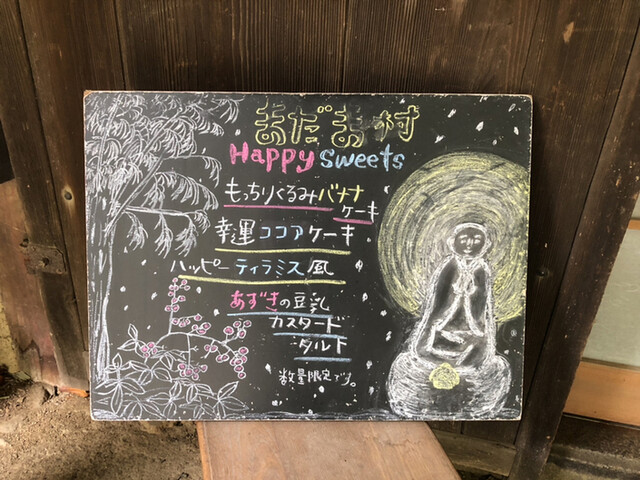 まだま村
Happy sweets
もっちりくるみバナナ
ケーキ
幸運ココアケーキ
ハッピーティラミス風
あずきの豆乳
カスタード
タルト
数量限定です。